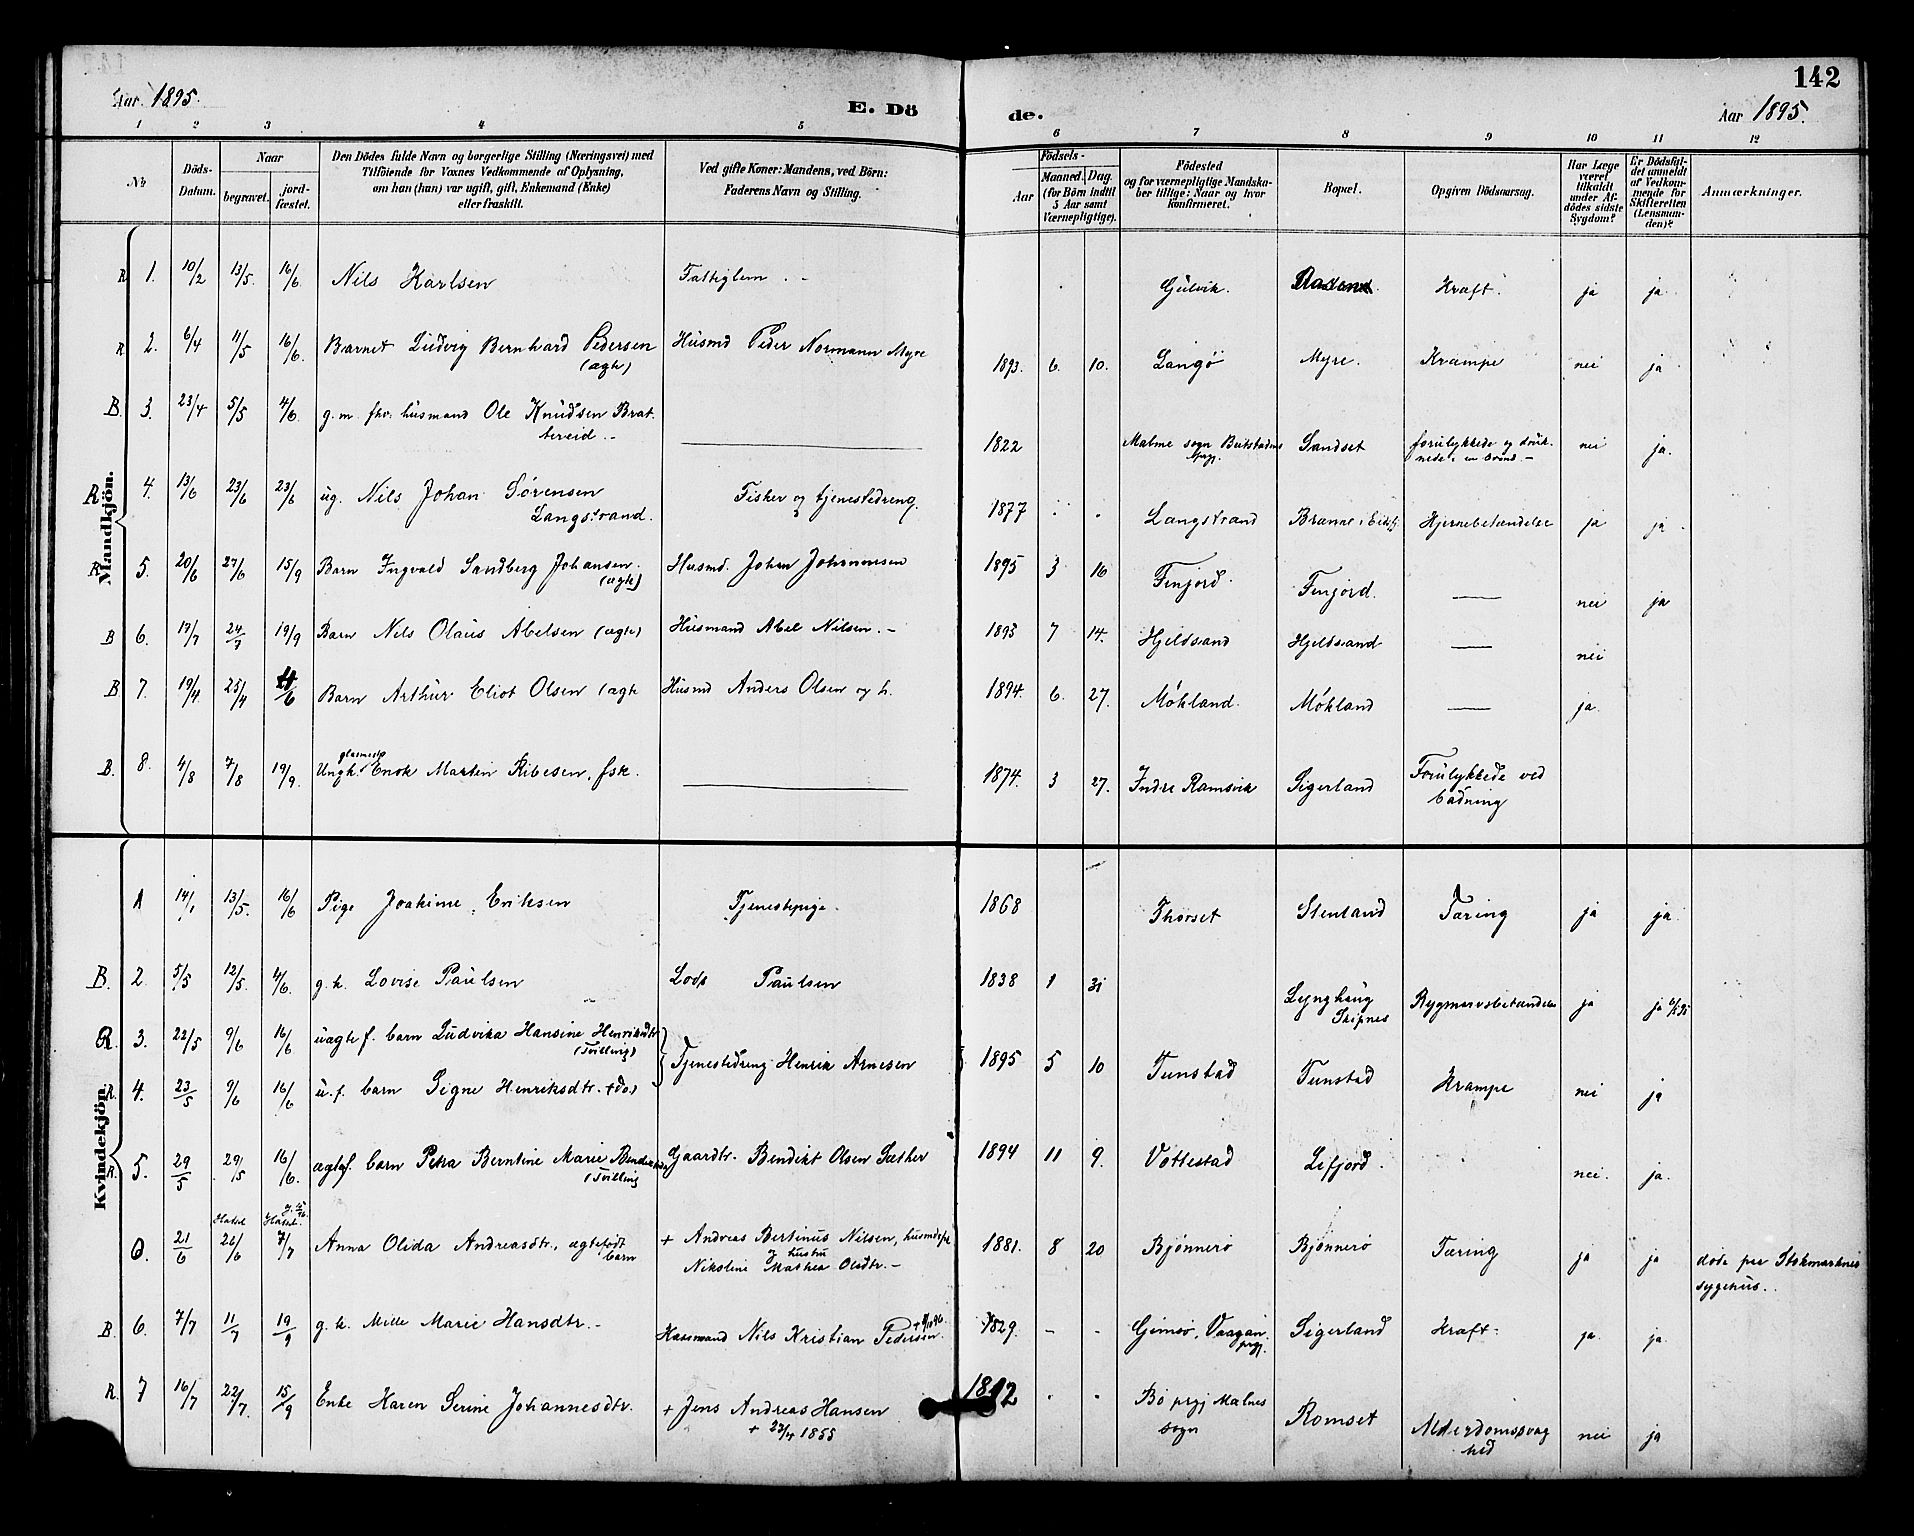 142
Aar 1895.
E. Döde.
Aar 1895.
1 2 3 4 5 6 7 8 9 10 11 12
No
Döds-Datum.
Naar
begravet.
jord-fæstet.
Den Dödes fulde Navn og borgerlige Stilling (Næringsvei) med
Tilföiende for Voxnes Vedkommende af Oplysning,
om han (hun) var ugift, gift, Enkemand (Enke)
eller fraskilt.
Ved gifte Koner: Mandens, ved Börn:
Faderens Navn og Stilling.
Födsels-
Aar
Maaned. Dag.
(for Börn indtil
5 Aar samt
Værnepligtige).
Födested
og for værnepligtige Mandska-
ber tillige: Naar og hvor
konfirmeret.
Bopæl.
Opgiven Dödsaarsag.
Har Læge
været
tilkaldt
under Af-
dödes sidste
Sygdom?
Er Dödsfal-
det anmeldt
af Vedkom-
mende for
Skifteretten
(Lensman-
den)?
Anmærkninger.
Mandkjön.
R 1. 10/2 13/5. 16/6. Nils Karlsen Fattiglem. - Gulvik. Kraft. ja ja.
R 2. 6/4 11/5 16/6. Barnet Ludvig Bernhard Pedersen Husmd Peder Normann Myre 1893. 6. 10. Langö Myre. Krampe nei ja
(ægte)
B. 3. 23/4 5/5 4/6 g. m. fhv. husmand Ole Knudsen Brat- 1822 Malme sogn Beitstadens Sandset forulykkede og druk- nei ja.
bereid. - prgj. nede i en brönd. -
R 4. 13/6 23/6 23/6 ug. Nils Johan Sörensen Fisker og tjenestedreng. 1877 Langstrand Brænne i Eidsfj. Hjernebetændelse ja ja
Langstrand.
R 5. 20/6 27/6 15/9 Barn Ingvald Sandberg Johansen. Husmd. Johan Johannesen 1895 3 16 Finjord. Finjord. — nei ja
(ægte)
B 6. 17/7 24/7 19/9 Barn Nils Olaus Abelsen (ægte) Husmand Abel Nilsen. - 1893 7 14. Hjeldsand Hjeldsand — nei
B 7. 19/4. 25/4 4/6 Barn Arthur Eliot Olsen (ægte Husmd Anders Olsen og h. 1894. 6. 27. Mökland. Mökland — ja.
B. 8. 4/8 7/8 19/9. Ungk. Enok Martin Ribesen, fsk. 1874. 3 27. Indre Ramsvik Sigerland Forulykkede ved
badning
Kvindekjön.
1 14/1 13/5. 16/6 Pige Joakime Eriksen Tjenestepige. 1868 Thorset Stenland Tæring ja ja
B. 2. 5/5 12/5. 4/6. g. k. Lovise Paulsen Lods Paulsen 1838 1 31 Lynghaug Rygmarvsbetændelse ja ja
Skipnes
R. 3. 22/5 9/6 16/6 uægte f. barn Ludvika Hansine Henriksdtr Tjenestedreng Henrik Arnesen 1895 5 10 Tunstad Tunstad Krampe nei ja
(Tvilling)
R. 4. 23/5 9/6 16/6 u. f. barn Signe Henriksdtr. (do)
R. 5. 29/5 29/5 16/6. ægtef. barn Petra Berntine Marie Gaardtr. Bendikt Olsen Sæther 1894 11 9. Vottestad Lifjord. nei. ja.
(Tvilling
Hatsel Hatsel.
21/6 26/6 7/7 Anna Olida Andreasdtr., ægtefödt + Andreas Bertinus Nilsen, 1881. 8 20 Bjönnerö Bjönnerö Tæring ja ja döde paa Stokmarknes
barn og hustru sygehus.
Nikoline Mathea Olsdtr. -
B. 6. 7/7 11/7 19/9 g. k. Mille Marie Hansdtr. - Husmand Nils Kristian Pedersen. 1829. - - Gimsö, Vaagan Sigerland Kraft - ja ja.
prgj.
R. 7 16/7 22/7. 15/9 Enke Karen Serine Johannesdtr. + Jens Andreas Hansen 1812 Bö prgj Malnes Romset Alderdomssvag nei ja
+ 23/4 1855 sogn hed